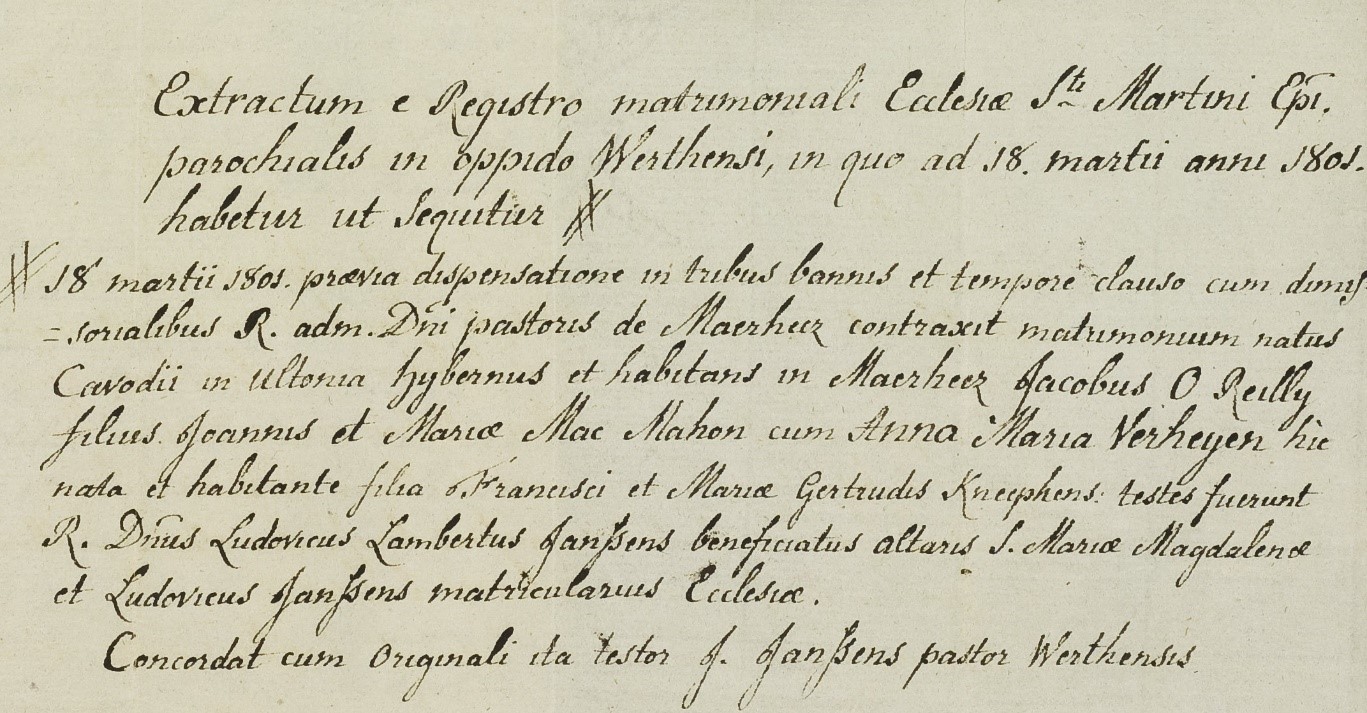 Extractum e Registro matrimoniali Ecclesiæ Sti Martini Epi.
parochialis in oppido Werthensi, in quo ad 18. martii anni 1801.
habetur ut sequitur #
# 18 martii 1801. prævia dispensatione in tribus bannis et tempore clauso cum dimis-
=sorialibus R. adm. Dni pastoris de Maerheez contraxit matrimonium natus
Cavodii in Ultonia hybernus et habitans in Maerheez Jacobus O Reilly
filius Joannis et Mariæ Mac Mahon cum Anna Maria Verheyen hic
nata et habitante filia Francisci et Mariæ Gertrudis Kneephens: testes fuerunt
R. Dnus Ludovicus Lambertus Janssens beneficiatus altaris S. Mariæ Magdalenæ
et Ludovicus Janssens matricularius Ecclesiæ.
Concordat cum originali ita testor J. Janssens pastor Werthensis